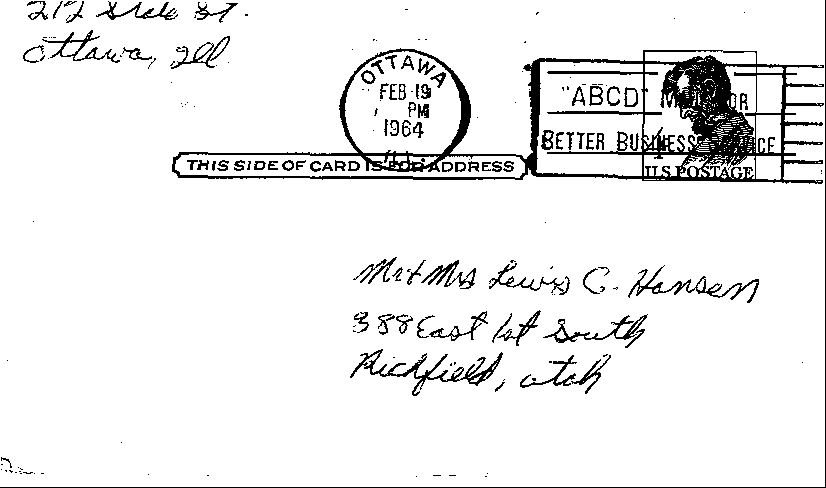 212 State St.
Ottawa, Ill
OTTAWA
FEB 19
PM
1964
ILL.
"ABCD" MAIL FOR
BETTER BUSINESS SERVICE
4
U.S. POSTAGE
THIS SIDE OF CARD IS FOR ADDRESS
Mr & Mrs Lewis C. Hansen
388 East 1st South
Richfield, Utah